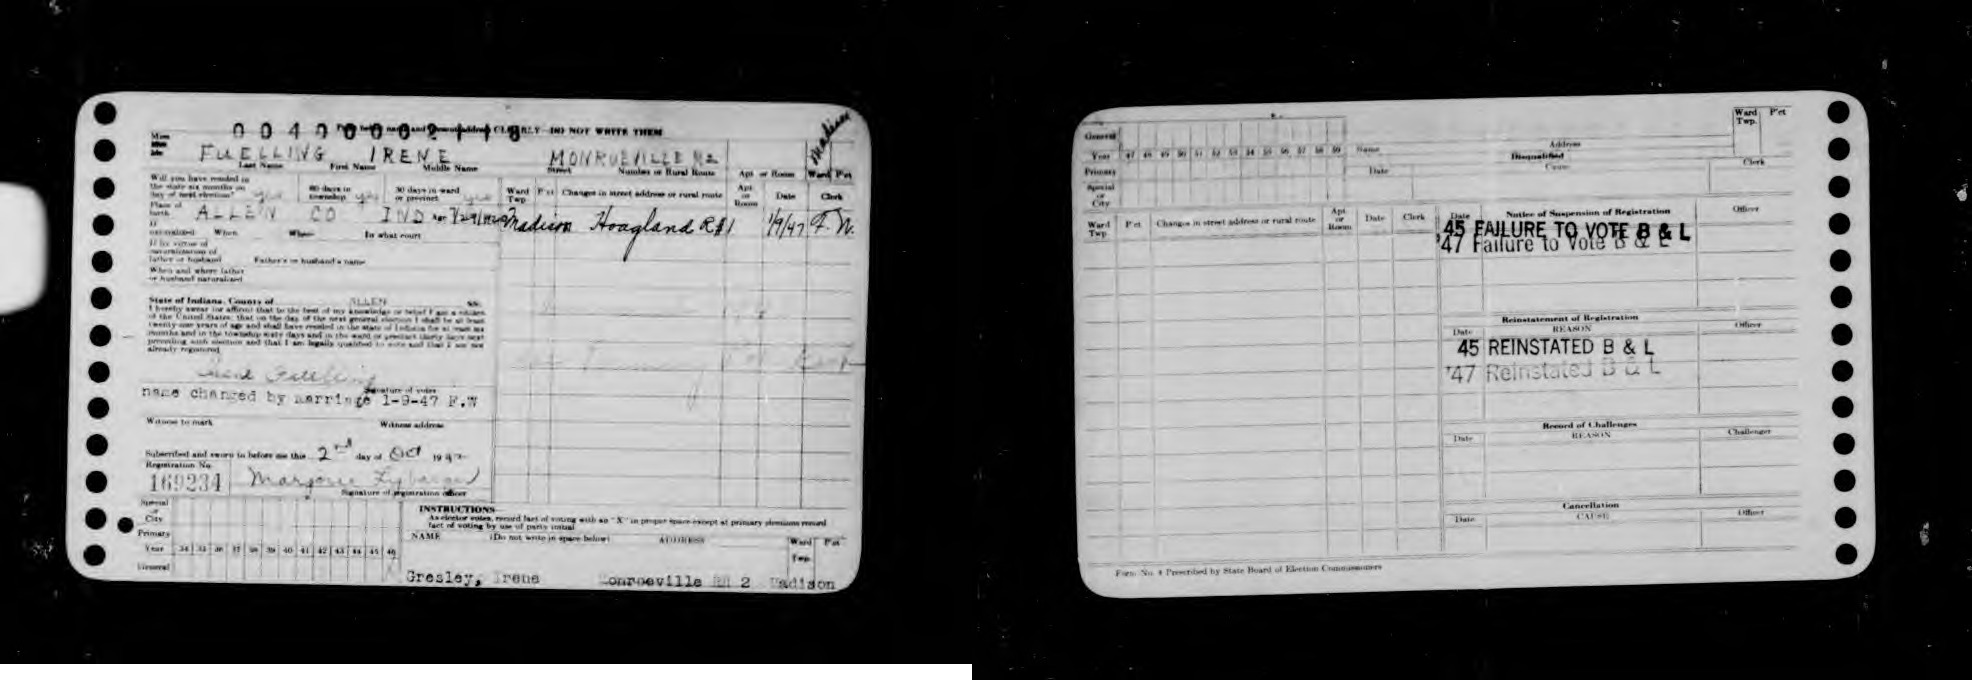 0040002118
Please print name and present address CLEARLY—DO NOT WRITE THEM
Madison
FUELLING IRENE MONROEVILLE R2
Last Name First Name Middle Name Street Number or Rural Route Apt or Room Ward P'ct
Will you have resided in
the state six months on
day of next election? yes
60 days in
township yes
30 days in ward
or precinct yes
Ward
Twp.
P'ct Changes in street address or rural route
Apt
or
Room
Date Clerk
Place of
birth ALLEN CO IND Age
Madison Hoagland R#1 1/9/47 F. W.
If
naturalized When Where In what court
If by virtue of
naturalization of
father or husband Father's or husband's name
When and where father
or husband naturalized
State of Indiana, County of ALLEN SS:
I hereby swear (or affirm) that to the best of my knowledge or belief I am a citizen
of the United States; that on the day of the next general election I shall be at least
twenty-one years of age and shall have resided in the state of Indiana for at least six
months and in the township sixty days and in the ward or precinct thirty days next
preceding such election and that I am legally qualified to vote and that I am not
already registered
Irene Fuelling
Signature of voter
name changed by marriage 1-9-47 F.W
Witness to mark Witness address
Subscribed and sworn to before me this 2nd day of Oct 19
Registration No.
169234 Marjorie
Signature of registration officer
Special
or
City
Primary
Year 34 35 36 37 38 39 40 41 42 43 44 45 46
General
INSTRUCTIONS
As elector votes, record fact of voting with an "X" in proper space except at primary elections record
fact of voting by use of party initial
NAME (Do not write in space below) ADDRESS Ward
Twp.
P'ct
Gresley, Irene Monroeville RR 2 Madison
General
Year 47 48 49 50 51 52 53 54 55 56 57 58 59
Primary
Special
or
City
Name Address
Ward
Twp.
P'ct
Disqualified
Date Cause Clerk
Ward
Twp.
P'ct Changes in street address or rural route
Apt
or
Room
Date Clerk
Date Notice of Suspension of Registration Officer
45 FAILURE TO VOTE B & L
'47 Failure to Vote B & L
Reinstatement of Registration
Date REASON Officer
45 REINSTATED B & L
'47 Reinstated B & L
Record of Challenges
Date REASON Challenger
Cancellation
Date CAUSE Officer
Form No. 4 Prescribed by State Board of Election Commissioners